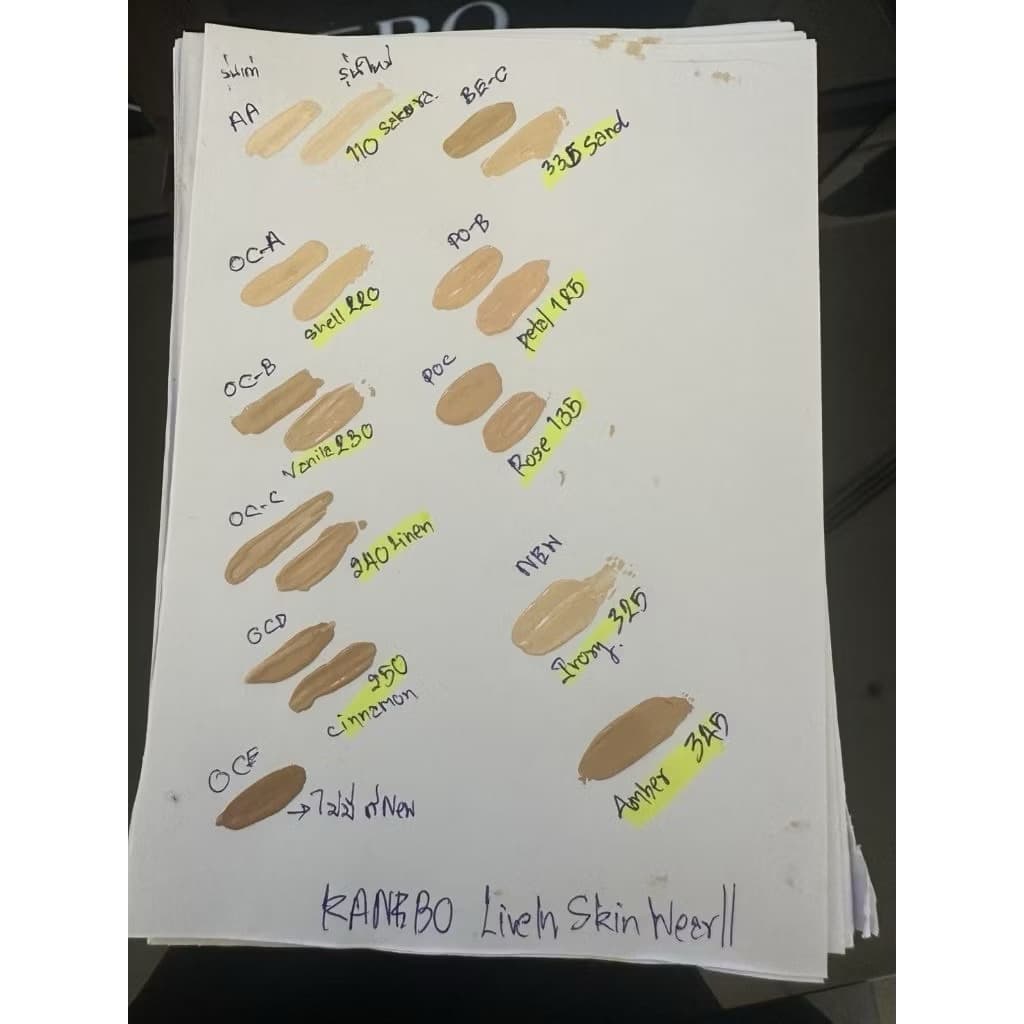 รุ่นเก่า รุ่นใหม่
AA 110 Sakura.
OC-A Shell 220
OC-B Vanila 230
OC-C 240 Linen
OCD 250 cinnamon
OCE → ไม่มี สี New
BE-C 335 Sand
PO-B petal 125
POC Rose 135
NEW
Ivory. 325
Amber 345
KANEBO LiveIn Skin Wear II